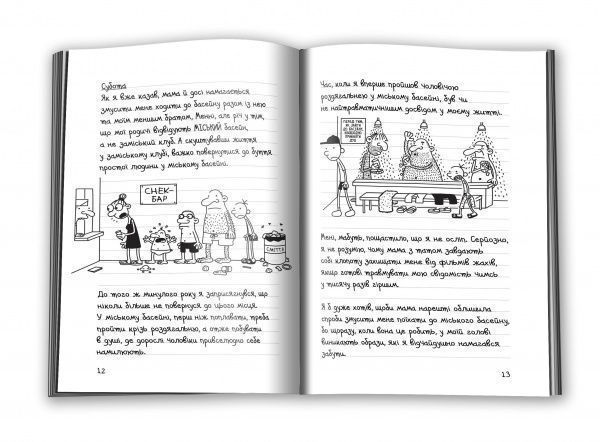 Субота
Як я вже казав, мама й досі намагається
змусити мене ходити до басейну разом із нею
та моїм меншим братом, Менні, але річ у тім,
що мої родичі відвідують МІСЬКИЙ басейн,
а не заміський клуб. А скуштувавши життя
у заміському клубі, важко повернутися до буття
простої людини у міському басейні.
СНЕК-
БАР
СМІТТЯ
До того ж минулого року я заприсягнувся, що
ніколи більше не повернуся до цього місця.
У міському басейні, перш ніж поплавати, треба
пройти крізь роздягальню, а отже побувати
в душі, де дорослі чоловіки привселюдно себе
намилюють.
12
Час, коли я вперше пройшов чоловічою
роздягальнею у міському басейні, був чи
не найтравматичнішим досвідом у моєму житті.
ПЕРЕД ТИМ,
ЯК ЗАЙТИ
ДО БАСЕЙНУ,
НЕОБХІДНО
ПРИЙНЯТИ
ДУШ
Мені, мабуть, пощастило, що я не осліп. Серйозно,
я не розумію, чому мама з татом завдають
собі клопоту захищати мене від фільмів жахів,
якщо готові травмувати мою свідомість чимсь
у тисячу разів гіршим.
Я б дуже хотів, щоби мама нарешті облишила
спроби змусити мене поїхати до міського басейну,
бо щоразу, коли вона це робить, у моїй голові
виникають образи, які я відчайдушно намагався
забути.
13